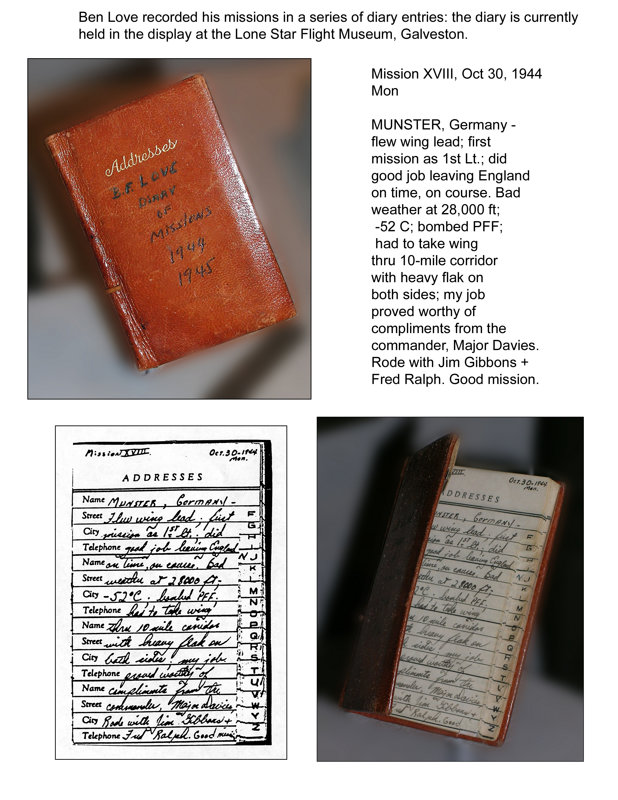 Ben Love recorded his missions in a series of diary entries: the diary is currently
held in the display at the Lone Star Flight Museum, Galveston.
Mission XVIII, Oct 30, 1944
Mon
MUNSTER, Germany -
flew wing lead; first
mission as 1st Lt.; did
good job leaving England
on time, on course. Bad
weather at 28,000 ft;
-52 C; bombed PFF;
had to take wing
thru 10-mile corridor
with heavy flak on
both sides; my job
proved worthy of
compliments from the
commander, Major Davies.
Rode with Jim Gibbons +
Fred Ralph. Good mission.
Addresses
B.F. LOVE
DIARY
OF
MISSIONS
1944
1945
Mission XVIII Oct. 30-1944
Mon.
ADDRESSES
Name MUNSTER, GERMANY -
Street Flew wing lead, first F
G
City mission as 1st Lt.; did H
Telephone good job leaving England I
Name on time, on course. Bad J
K
Street weather at 28000 ft. L
City -52°C. bombed PFF. M
N
Telephone had to take wing O
Name thru 10 mile corridor P
Q
Street with heavy flak on R
City both sides; my job S
T
Telephone proved worthy of U
Name compliments from the V
Street commander, Major Davies W
City Rode with Jim Gibbons + Y
Telephone Fred Ralph. Good Z
Oct. 30-1944
Mon.
DDRESSES
wing lead, first
as 1st Lt.; did
good job leaving England
time, on course. Bad
at 28000 ft.
bombed PFF.
had to take wing
10 mile corridor
heavy flak on
sides; my job
worthy of
compliments from the
Major Davies
with Jim Gibbons +
Ralph. Good